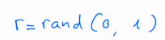 r = rand (0, 1)